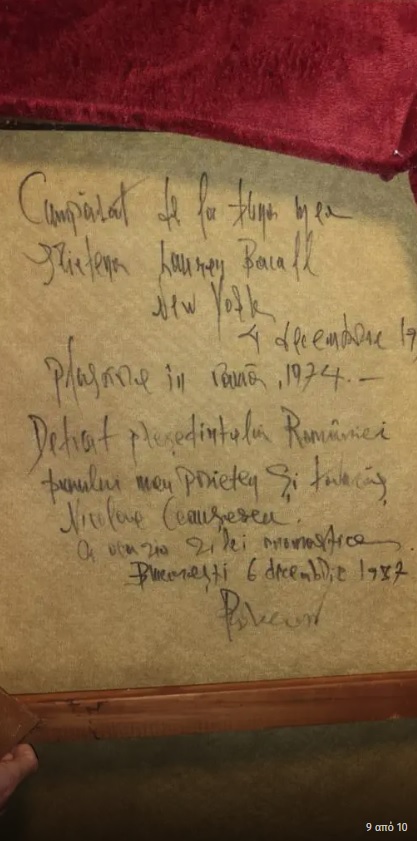 Cumpărat de la buna mea
Prietena Lauren Bacall
New York
4 decembrie 19
în ramă, 1974.—
Dedicat președintelui României
bunului meu prieten și
Nicolae Ceaușescu.
Cu ocazia zilei onomastice.
București 6 decembrie 1987
9 από 10